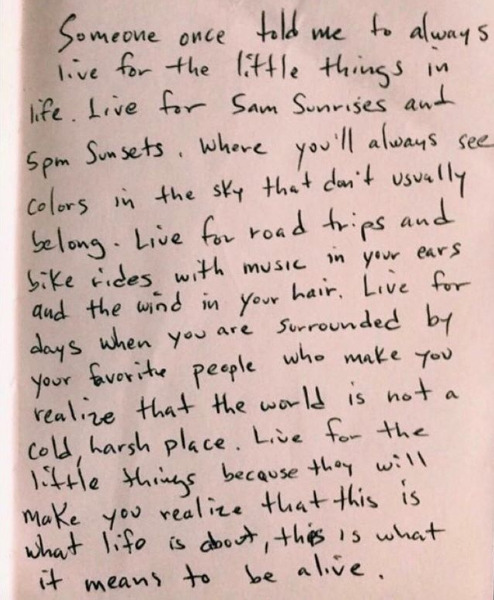 Someone once told me to always
live for the little things in
life. Live for 5am Sunrises and
5pm Sunsets. Where you'll always see
colors in the sky that don't usually
belong. Live for road trips and
bike rides with music in your ears
and the wind in your hair. Live for
days when you are surrounded by
your favorite people who make you
realize that the world is not a
cold, harsh place. Live for the
little things because they will
make you realize that this is
what life is about, this is what
it means to be alive.